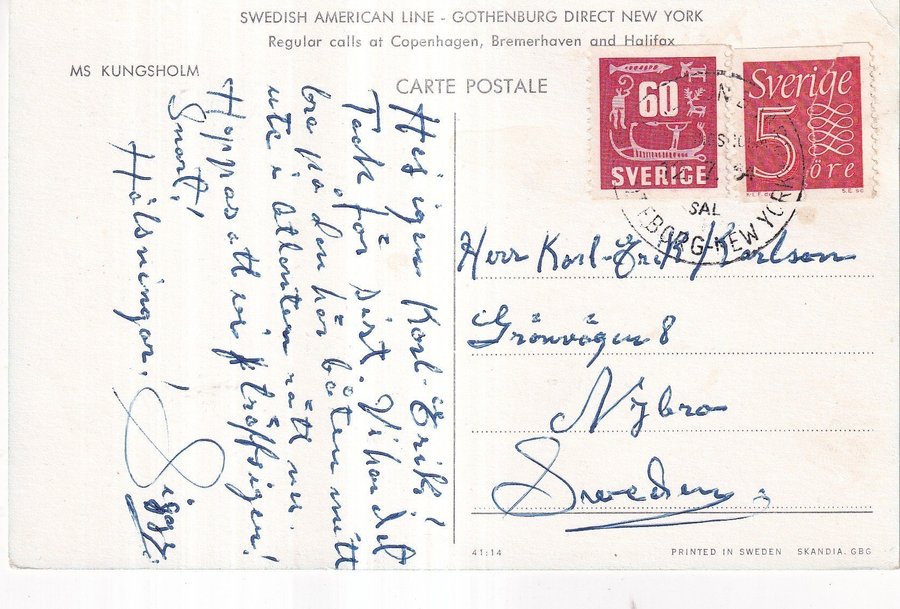 SWEDISH AMERICAN LINE - GOTHENBURG DIRECT NEW YORK
Regular calls at Copenhagen, Bremerhaven and Halifax
MS KUNGSHOLM
CARTE POSTALE
Hej igen Karl-Erik!
Tack för sist. Vi har det
bra på den här båten mitt
ute i Atlanten rätt nu.
Hoppas att vi träffs igen!
Snart!
Hälsningar!
Siggy
60
SVERIGE
Sverige
5
öre
SAL
BORG-NEW YORK
Herr Karl-Erik Karlson
Grönvägen 8
Nybro
Sweden
41:14
PRINTED IN SWEDEN SKANDIA. GBG